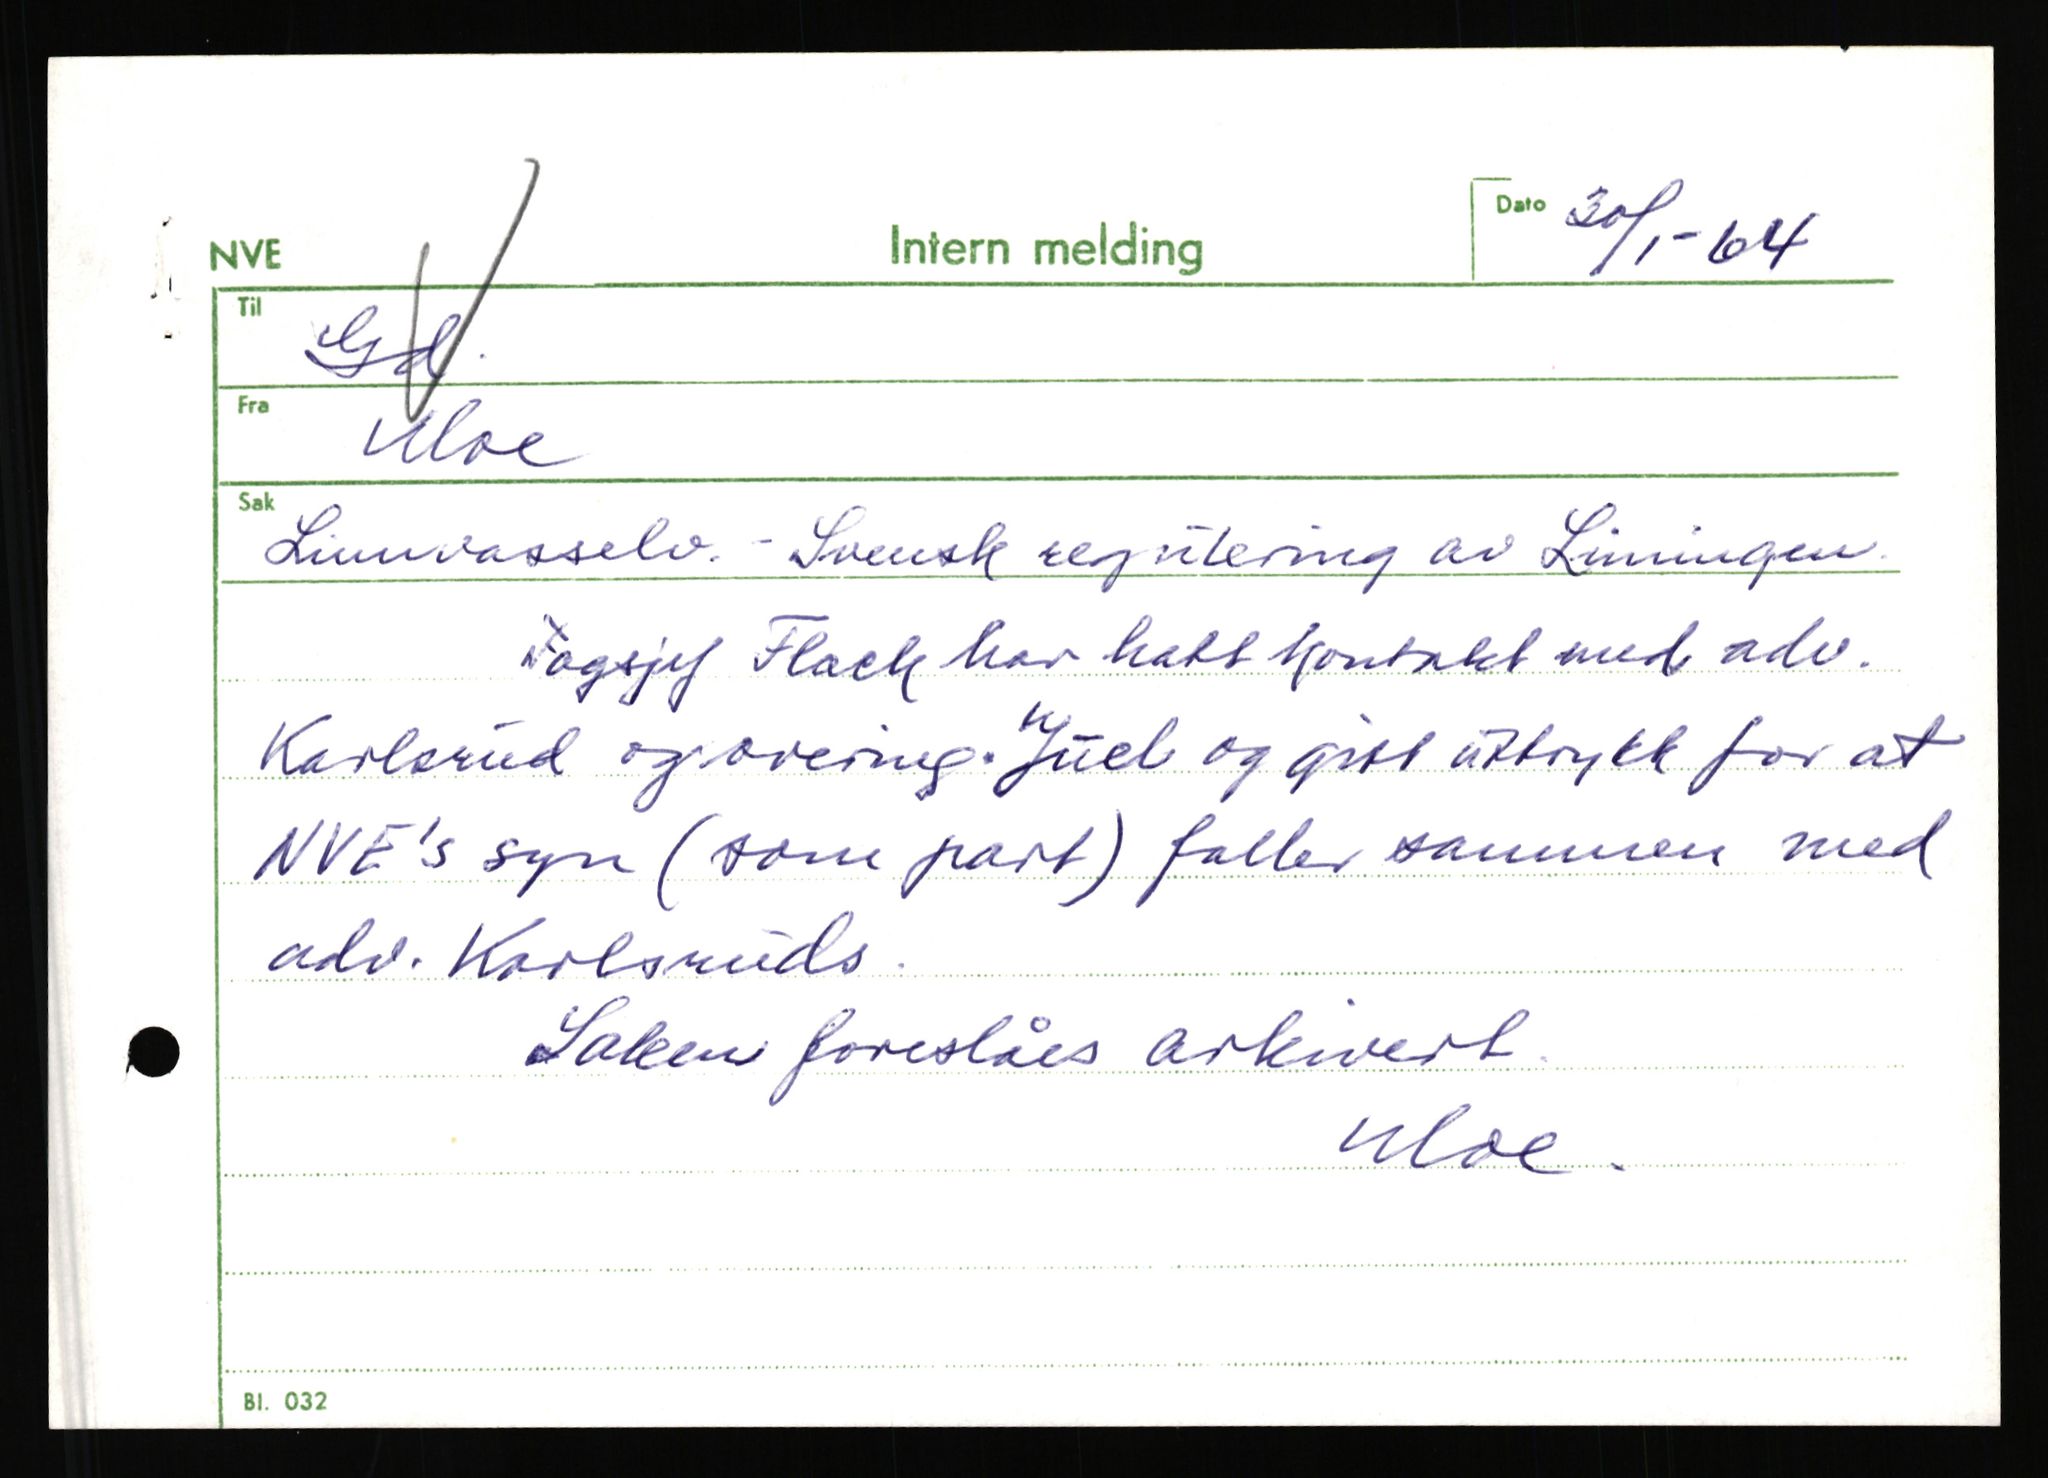 NVE
Intern melding
Dato 30/1-64
Til
Gd.
Fra
Moe
Sak
Linnvasselv. - Svensk regulering av Limingen.
Fagsjef Flack har hatt kontakt med adv.
Karlsrud og overing. Kjuel og gitt uttrykk for at
NVE's syn (som part) faller sammen med
adv. Karlsruds.
Saken foreslåes arkivert.
Moe.
Bl. 032